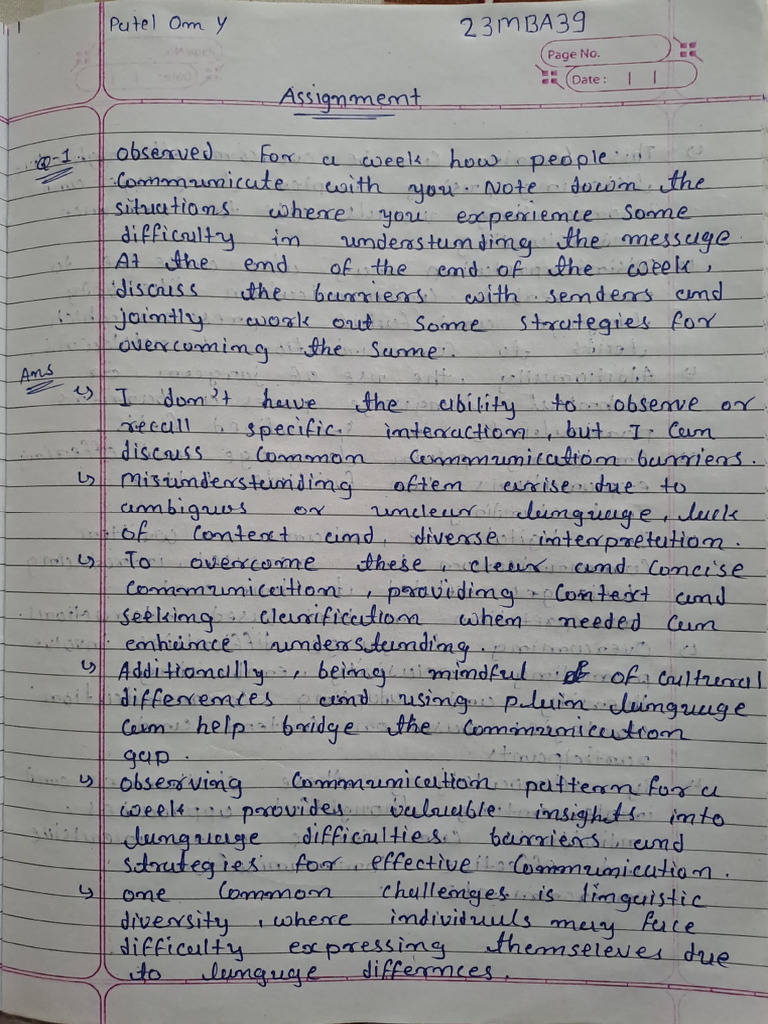 Patel Om Y 23MBA39
Page No.
Date: | |
Assignment
Q-1. observed for a week how people
communicate with you. Note down the
situations where you experience some
difficulty in understanding the message
At the end of the end of the week,
discuss the barriers with senders and
jointly work out some strategies for
overcoming the same.
Ans
↳ I don't have the ability to observe or
recall specific interaction, but I can
discuss common communication barriers.
↳ misunderstanding often arise due to
ambigous or unclear language, lack
of context and diverse interpretation.
↳ To overcome these, clear and concise
communication, providing context and
seeking clarification when needed can
enhance understanding.
↳ Additionally, being mindful of cultural
differences and using plain language
can help bridge the communication
gap.
↳ observing communication pattern for a
week provides valuable insights into
language difficulties barriers and
strategies for effective communication.
↳ one common challenges is linguistic
diversity, where individuals may face
difficulty expressing themseleves due
to languge differnces.